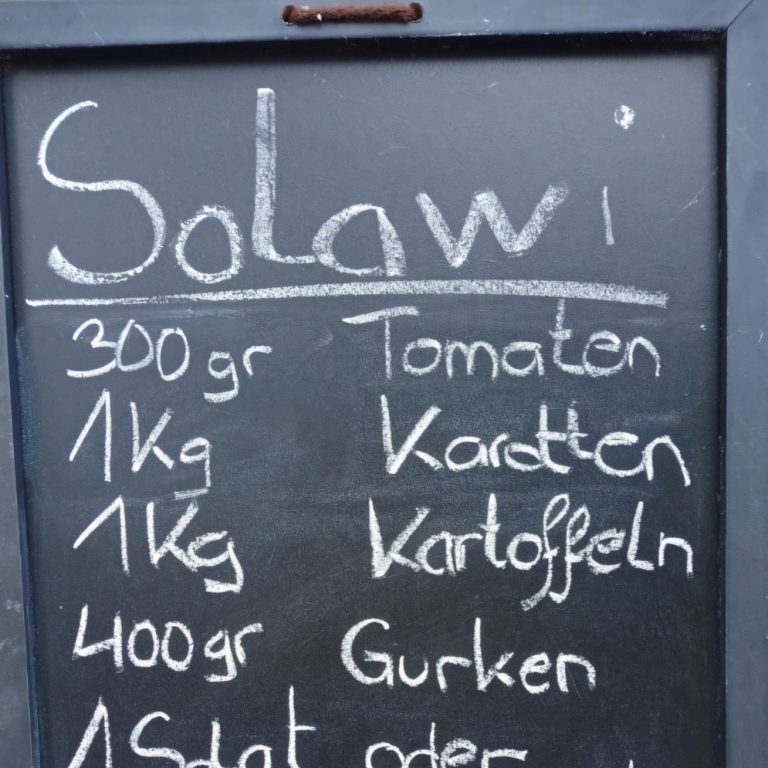 Solawi
300gr Tomaten
1Kg Karotten
1Kg Kartoffeln
400gr Gurken
1 Salat oder